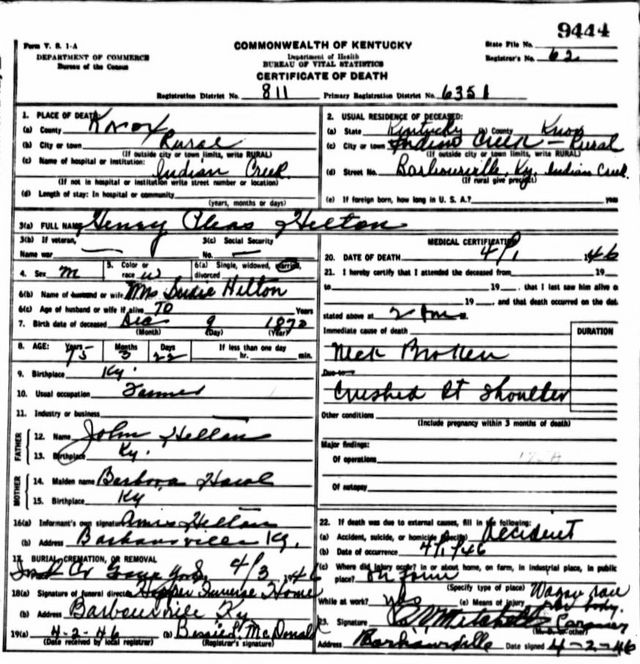 9444
Form V. S. 1-A
COMMONWEALTH OF KENTUCKY
State File No.
DEPARTMENT OF COMMERCE
Bureau of the Census
Department of Health
BUREAU OF VITAL STATISTICS
Registrar's No. 62
CERTIFICATE OF DEATH
Registration District No. 811 Primary Registration District No. 6351
1. PLACE OF DEATH
(a) County Knox
(b) City or town Rural
(If outside city or town limits, write RURAL)
(c) Name of hospital or institution: Indian Creek
(If not in hospital or institution write street number or location)
(d) Length of stay: In hospital or community
(years, months or days)
2. USUAL RESIDENCE OF DECEASED:
(a) State Kentucky (b) County Knox
(c) City or town Indian Creek - Rural
(If outside city or town limits, write RURAL)
(d) Street No. Barbourville, Ky. Indian Creek
(If rural give precinct)
(e) If foreign born, how long in U. S. A.? year
3(a) FULL NAME Henry Pleas Helton
3(b) If veteran,
Name war
3(c) Social Security
No.
4. Sex M
5. Color or race W
6(a) Single, widowed, married, divorced
6(b) Name of husband or wife Mrs Helton
6(c) Age of husband or wife if alive 70 Years
7. Birth date of deceased Dec 9 1870
(Month) (Day) (Year)
8. AGE: Years 75 Months 3 Days 22 If less than one day
hr. min.
9. Birthplace Ky.
10. Usual occupation Farmer
11. Industry or business
FATHER
12. Name John Helton
13. Birthplace Ky.
MOTHER
14. Maiden name Barbara
15. Birthplace Ky
16(a) Informant's own signature Helton
(b) Address Barbourville Ky.
17. BURIAL, CREMATION, OR REMOVAL 4/3 1946
18(a) Signature of funeral director Hopper Funeral Home
(b) Address Barbourville Ky
19(a) 4-2-46 (b) Bessie L. McDonald
(Date received by local registrar) (Registrar's signature)
MEDICAL CERTIFICATION
20. DATE OF DEATH 4/1 1946
21. I hereby certify that I attended the deceased from 19
to 19 , that I last saw him alive on
19 , and that death occurred on the date
stated above at 2 m
Immediate cause of death
DURATION
Neck Broken
Due to
Crushed Rt Shoulder
Other conditions
(Include pregnancy within 3 months of death)
Major findings:
Of operations
Of autopsy
22. If death was due to external causes, fill in the following:
(a) Accident, suicide, or homicide (Specify) Accident
(b) Date of occurrence 4/1/46
(c) Where did injury occur? in or about home, on farm, in industrial place, in public
place? On farm
(Specify type of place)
While at work? yes (e) Means of injury Wagon ran over body.
23. Signature Mitchell Coroner
(M. D. or other)
Address Barbourville Date signed 4-2-46